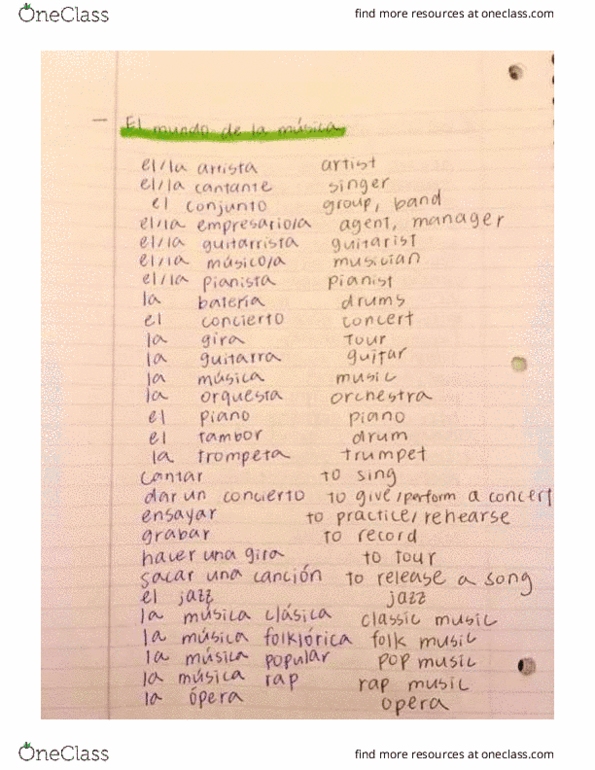 OneClass
find more resources at oneclass.com
El mundo de la música
el/la artista artist
el/la cantante singer
el conjunto group, band
el/la empresario/a agent, manager
el/la guitarrista guitarist
el/la músico/a musician
el/la pianista pianist
la batería drums
el concierto concert
la gira tour
la guitarra guitar
la música music
la orquesta orchestra
el piano piano
el tambor drum
la trompeta trumpet
cantar to sing
dar un concierto to give/perform a concert
ensayar to practice/rehearse
grabar to record
hacer una gira to tour
sacar una canción to release a song
el jazz jazz
la música clásica classic music
la música folklórica folk music
la música popular pop music
la música rap rap music
la ópera opera
OneClass
find more resources at oneclass.com